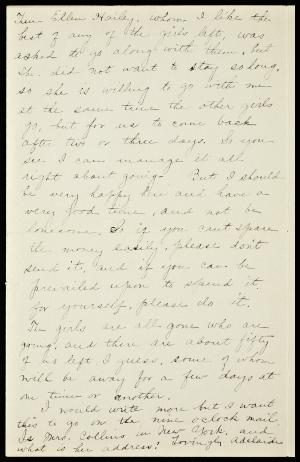 Then Ellen Hailey, whom I like the
best of any of the girls left, was
asked to go along with them, but
she did not want to stay so long,
so she is willing to go with me
at the same time the other girls
go, but for us to come back
after two or three days. So you
see I can manage it all
right about going. But I should
be very happy here and have a
very good time, and not be
lonesome. So if you can't spare
the money easily, please don't
send it, and if you can be
prevailed upon to spend it
for yourself, please do it.
The girls are all gone who are
going, and there are about fifty
of us left I guess, some of whom
will be away for a few days at
one time or another.
I would write more but I want
this to go on the nine o'clock mail
Is Mrs. Collins in New York, and
what is her address? Lovingly Adelaide